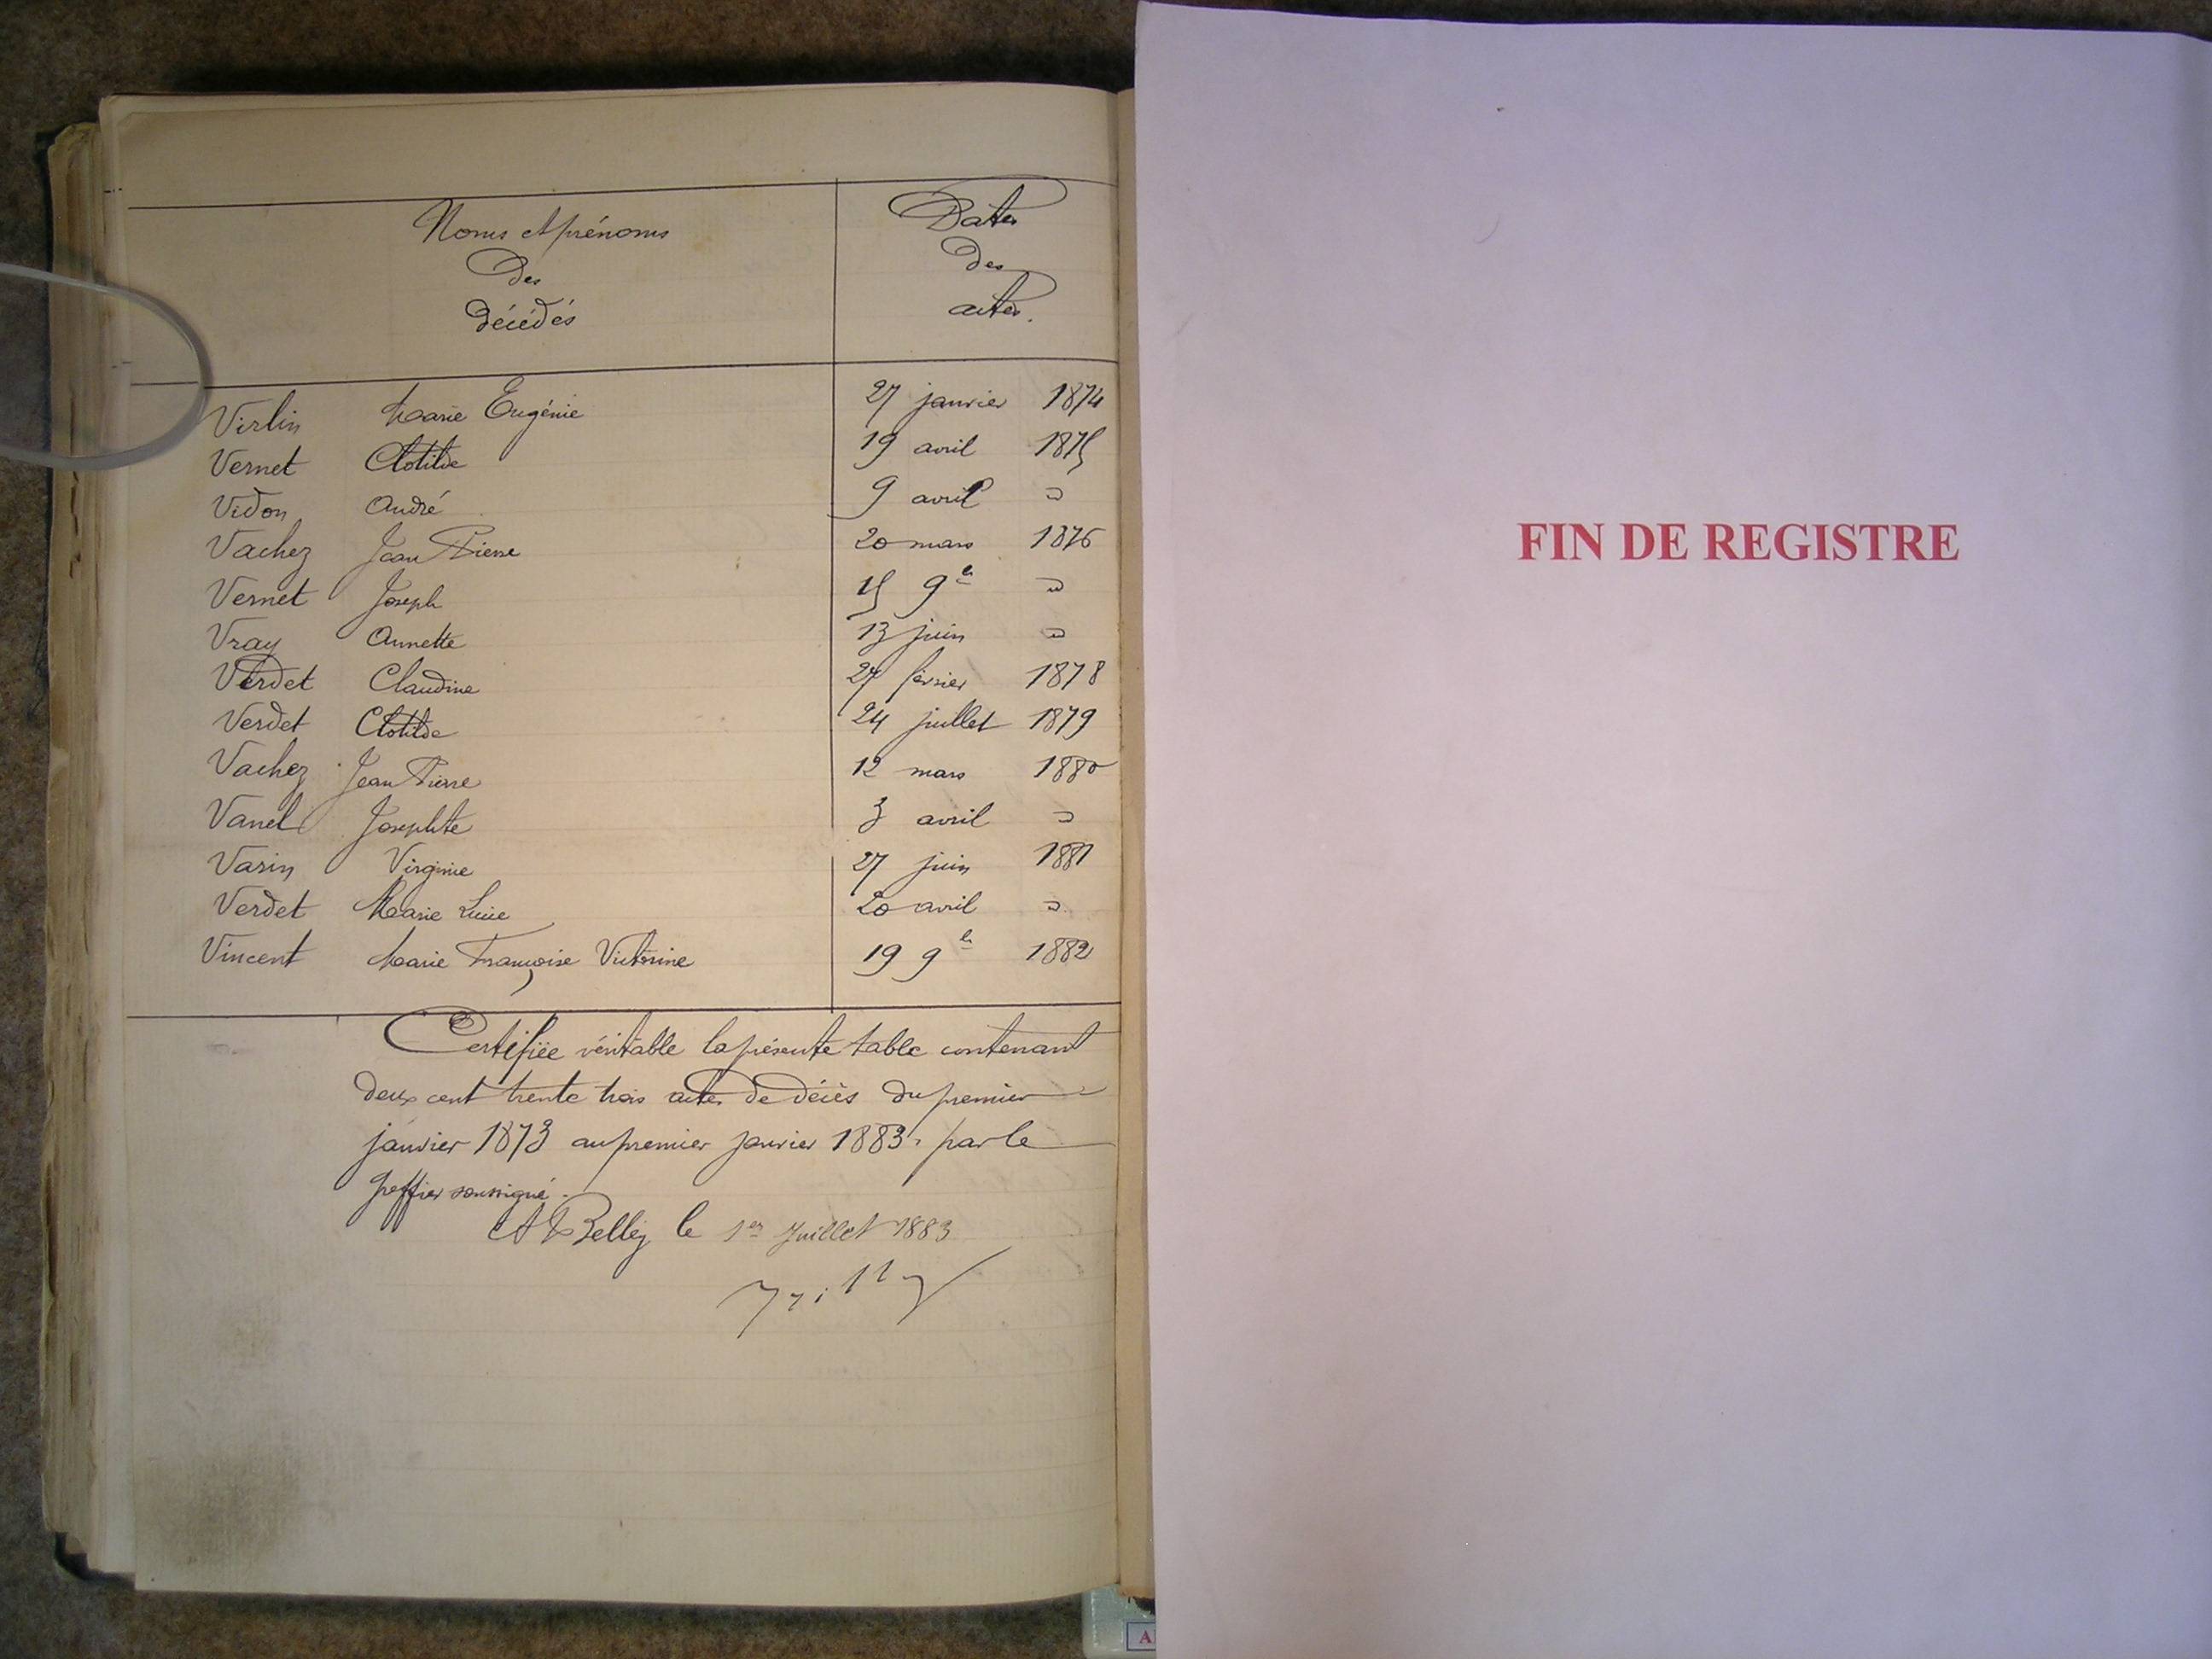 Noms et prénoms
des
décédés
Dates
des
actes.
Virlin Marie Eugénie 27 janvier 1874
Vernet Clotilde 19 avril 1875
Vidon André 9 avril "
Vachez Jean Pierre 20 mars 1876
Vernet Joseph 15 9bre "
Vray Annette 13 juin "
Verdet Claudine 27 février 1878
Verdet Clotilde 24 juillet 1879
Vachez Jean Pierre 12 mars 1880
Vanel Josephte 3 avril "
Varin Virginie 27 juin 1881
Verdet Marie Lucie 20 avril "
Vincent Marie Françoise Victorine 19 9bre 1882
Certifiée véritable la présente table contenant
deux cent trente trois actes de décès du premier
janvier 1873 au premier janvier 1883. par le
greffier soussigné.
A Belley le 1er Juillet 1883
FIN DE REGISTRE